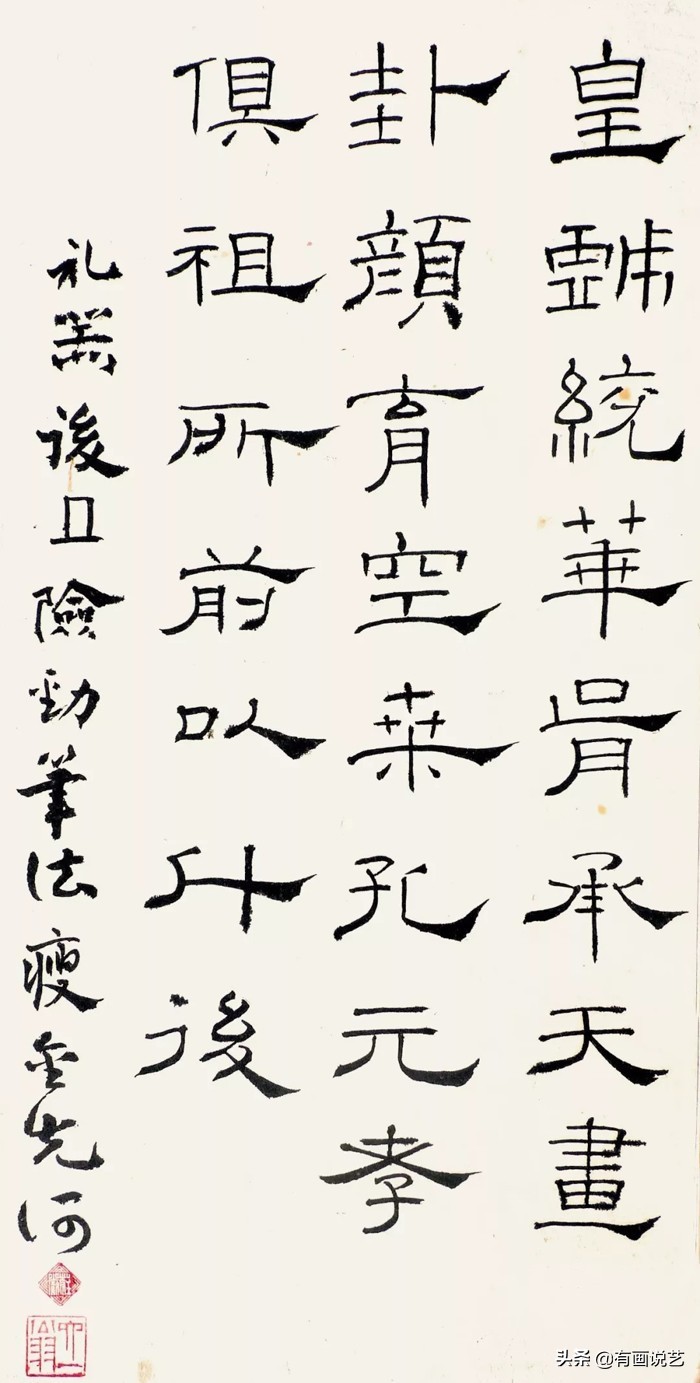 皇戲統華胥承天畫
卦顏育空桑孔元孝
俱祖所前以什後
礼器且險勁筆法瘦金先河
六一翁
头条 @有画说艺